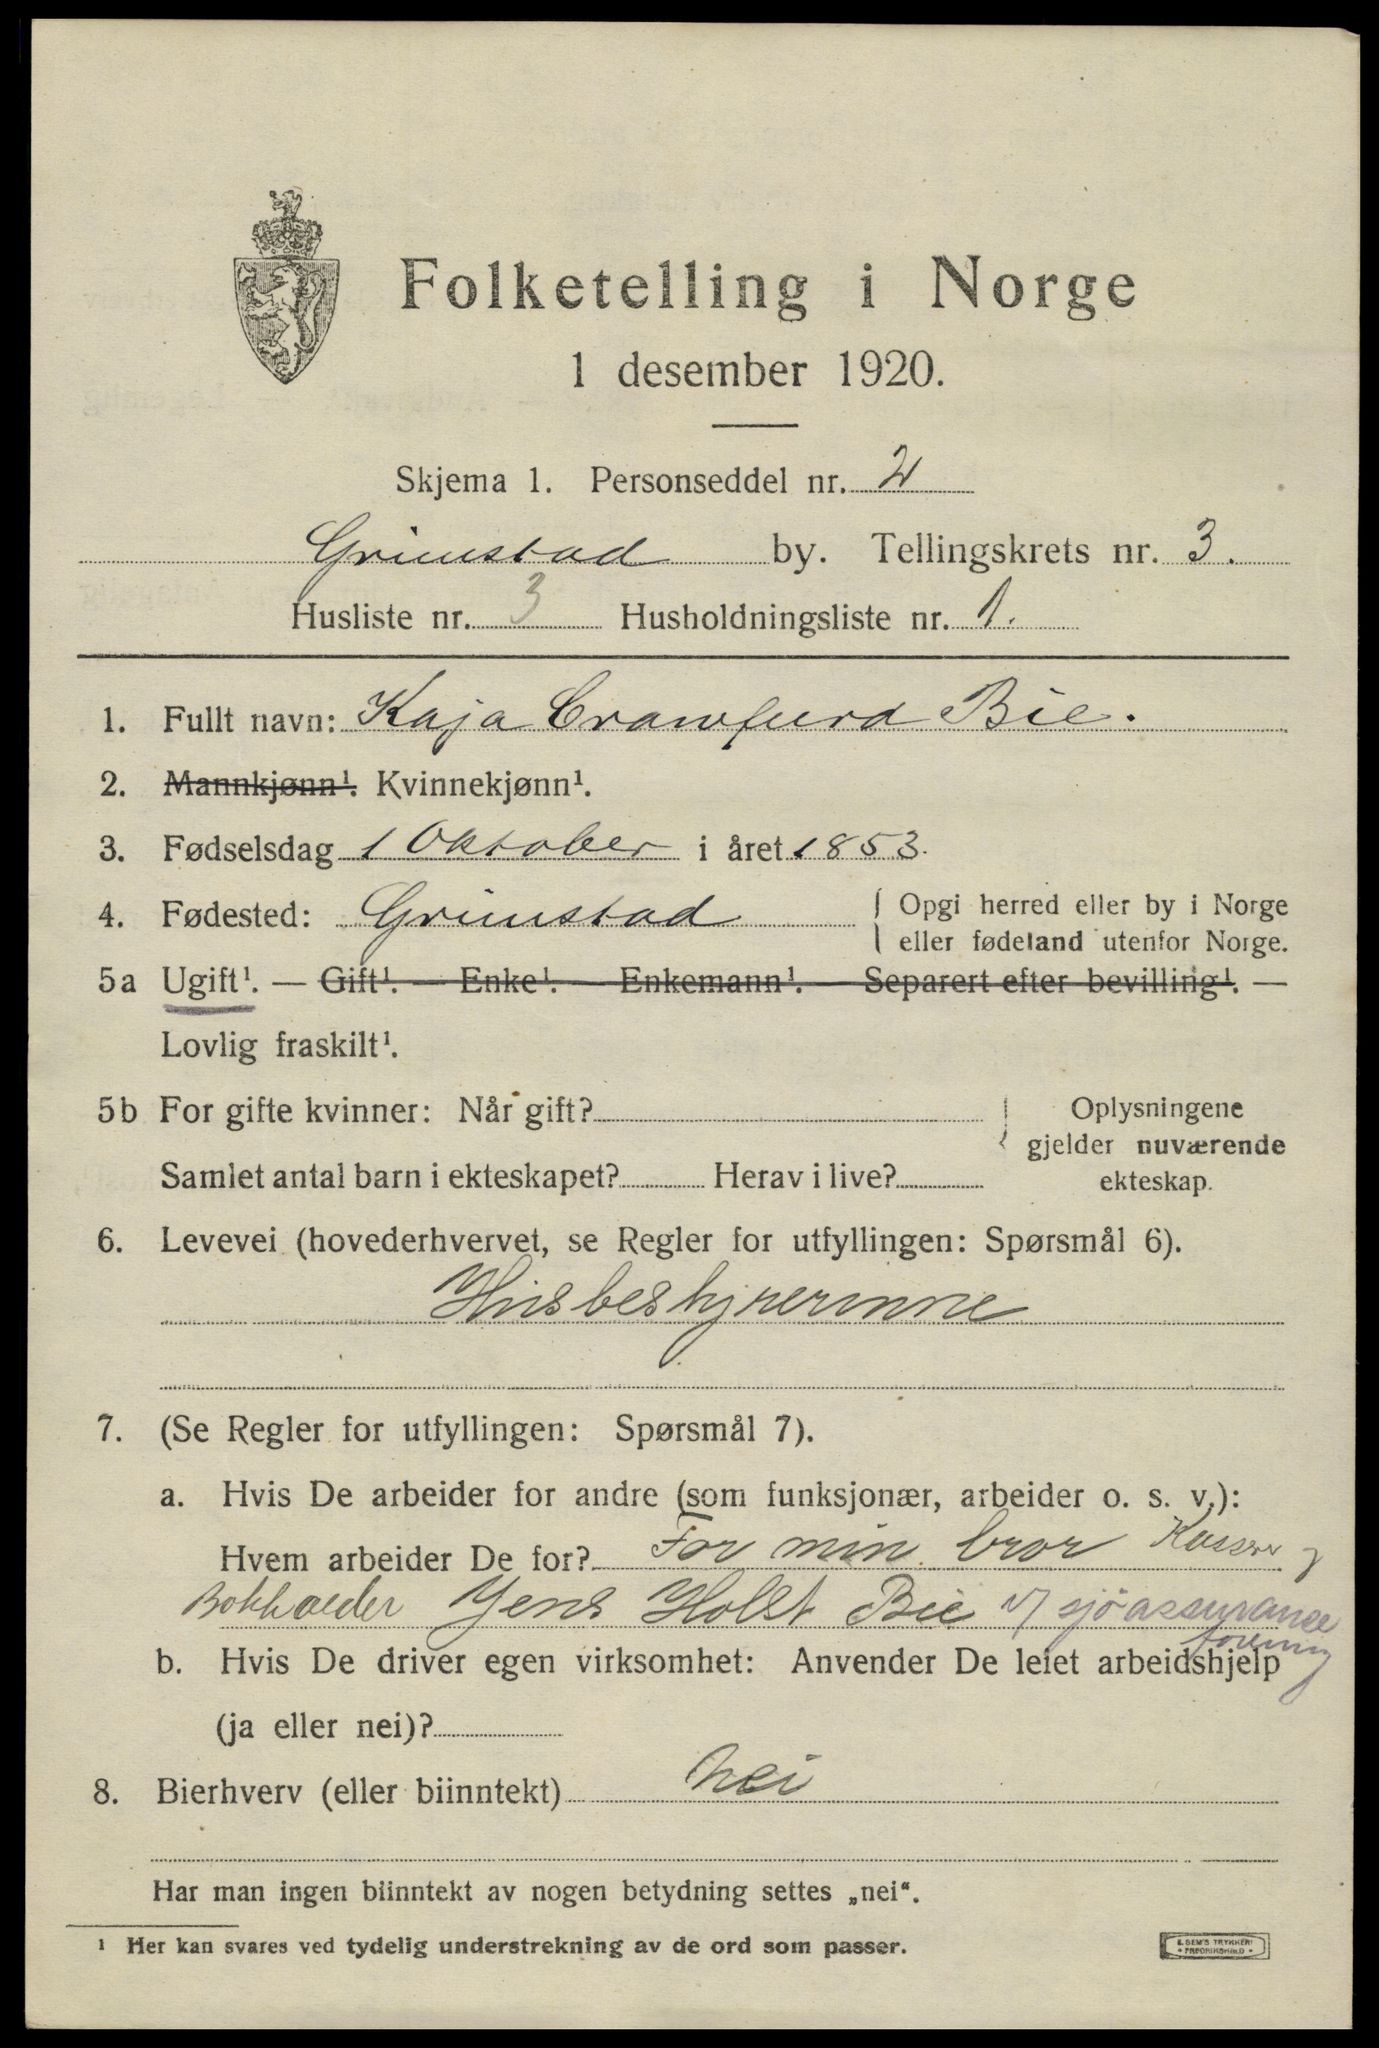 Folketelling i Norge
1 desember 1920.
Skjema 1. Personseddel nr. 2
Grimstad by. Tellingskrets nr. 3.
Husliste nr. 3 Husholdningsliste nr. 1.
1. Fullt navn: Kaja Crawfurd Bie.
2. Mannkjønn¹. Kvinnekjønn¹.
3. Fødselsdag 1 Oktober i året 1853.
4. Fødested: Grimstad { Opgi herred eller by i Norge
eller fødeland utenfor Norge.
5a Ugift¹. — Gift¹. — Enke¹. — Enkemann¹. — Separert efter bevilling¹. —
Lovlig fraskilt¹.
5b For gifte kvinner: Når gift? Oplysningene
gjelder nuværende
Samlet antal barn i ekteskapet? Herav i live? ekteskap.
6. Levevei (hovederhvervet, se Regler for utfyllingen: Spørsmål 6).
Husbestyrerinne
7. (Se Regler for utfyllingen: Spørsmål 7).
a. Hvis De arbeider for andre (som funksjonær, arbeider o. s. v.):
Hvem arbeider De for? For min bror Kasser og
Bokholder Jens Holst Bie v/ sjöassurance
forening
b. Hvis De driver egen virksomhet: Anvender De leiet arbeidshjelp
(ja eller nei)?
8. Bierhverv (eller biinntekt) nei
Har man ingen biinntekt av nogen betydning settes „nei“.
¹ Her kan svares ved tydelig understrekning av de ord som passer.
E. SEM'S TRYKKERI
• FREDRIKSHALD •